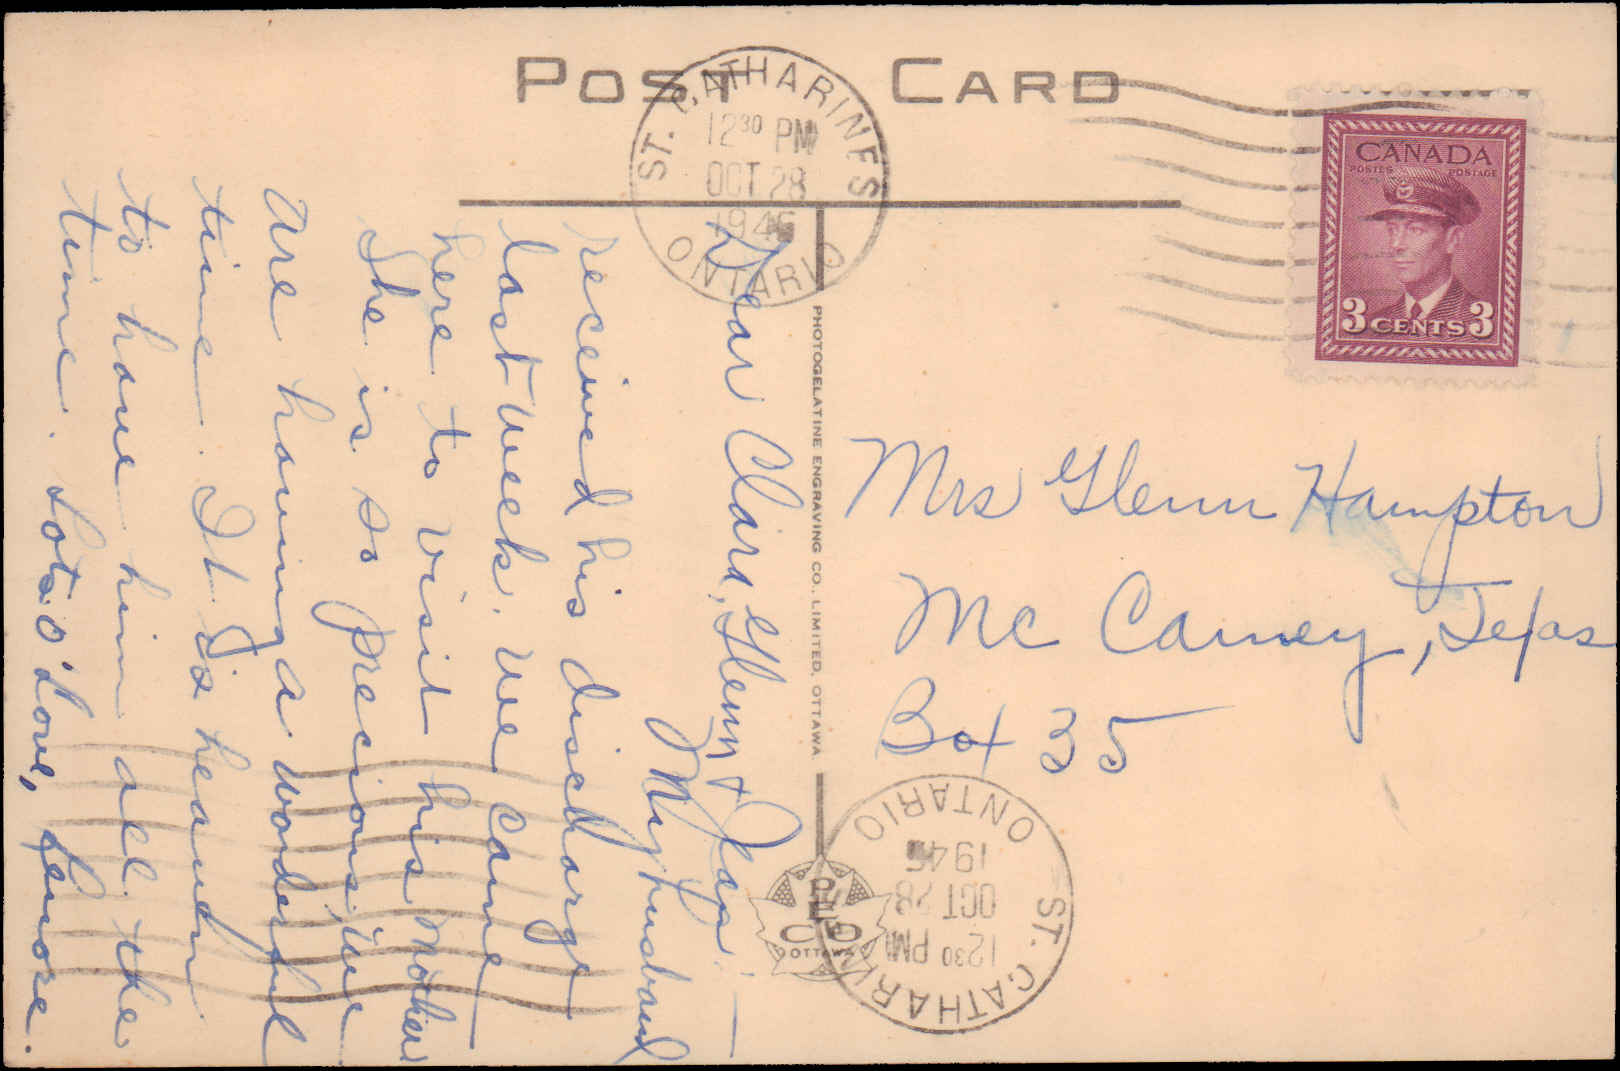 POST CARD
ST. CATHARINES
12 30 PM
OCT 28
1946
ONTARIO
CANADA
POSTES POSTAGE
3 CENTS 3
Dear Clara, Glenn & Jean.
My husband
received his discharge
last week. We came
here to visit his mother
She is so precious, we
are having a wonderful
time. It is heaven
to have him all the
time. Lots o' Love, Lenore.
PHOTOGELATINE ENGRAVING CO., LIMITED, OTTAWA
Mrs Glenn Hampton
Mc Camey, Texas
Box 35
PECO
OTTAWA
ST. CATHARIN
12 30 PM
OCT 28
1946
ONTARIO